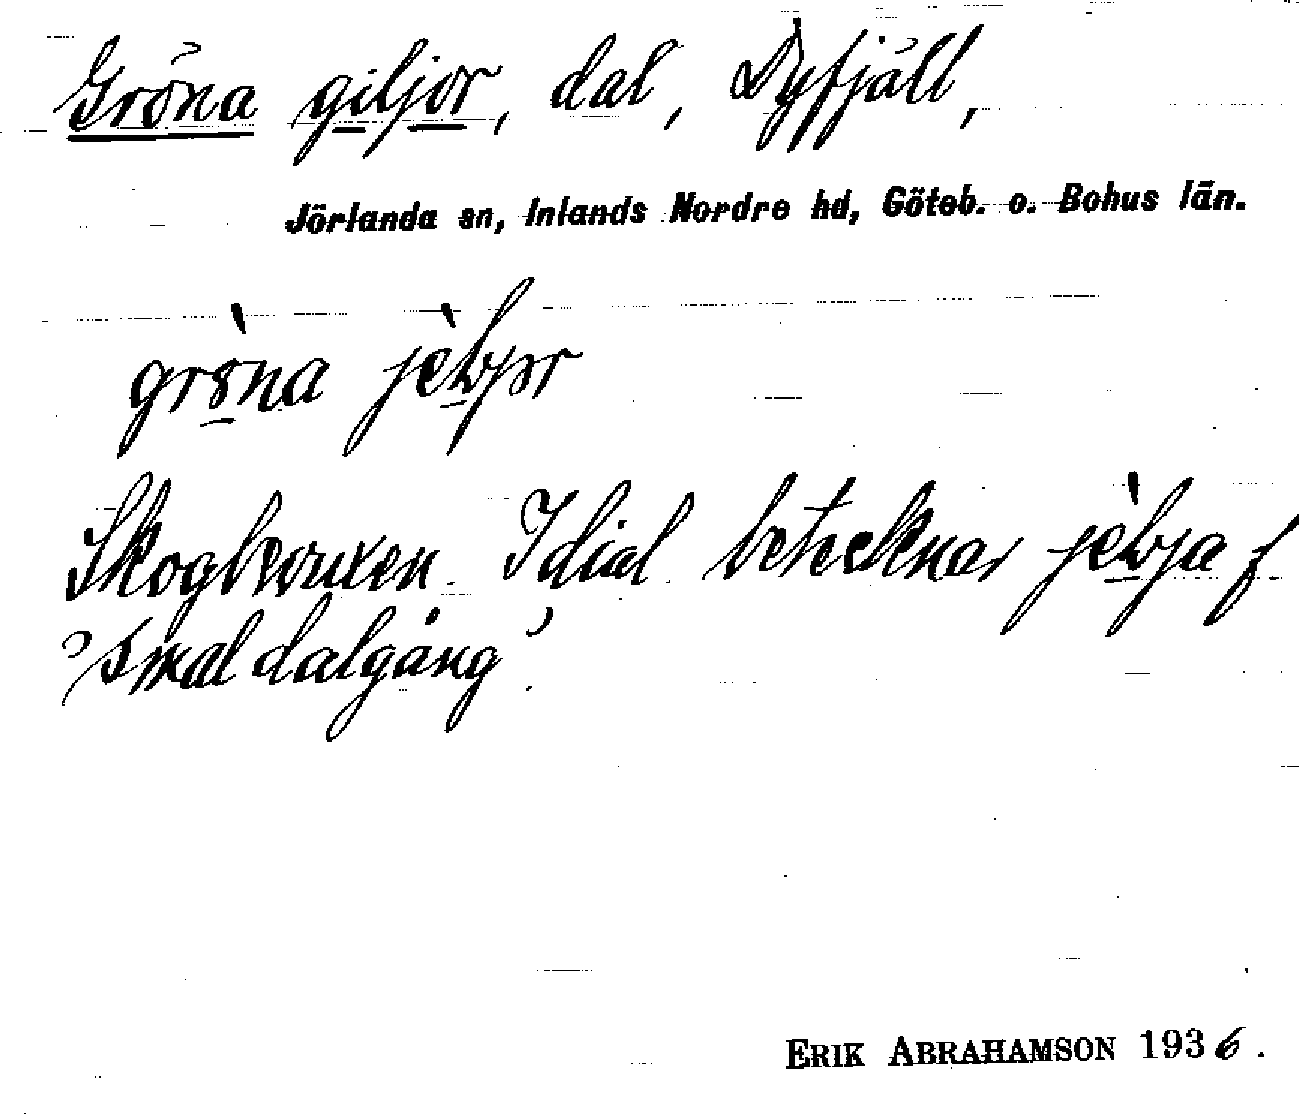 Gröna giljor, dal, Dyfjäll,
Jörlanda sn, Inlands Nordre hd, Göteb. o. Bohus län.
gröna
Skogbevuxen. I dial betecknar f
'smal dalgång'.
ERIK ABRAHAMSON 1936.